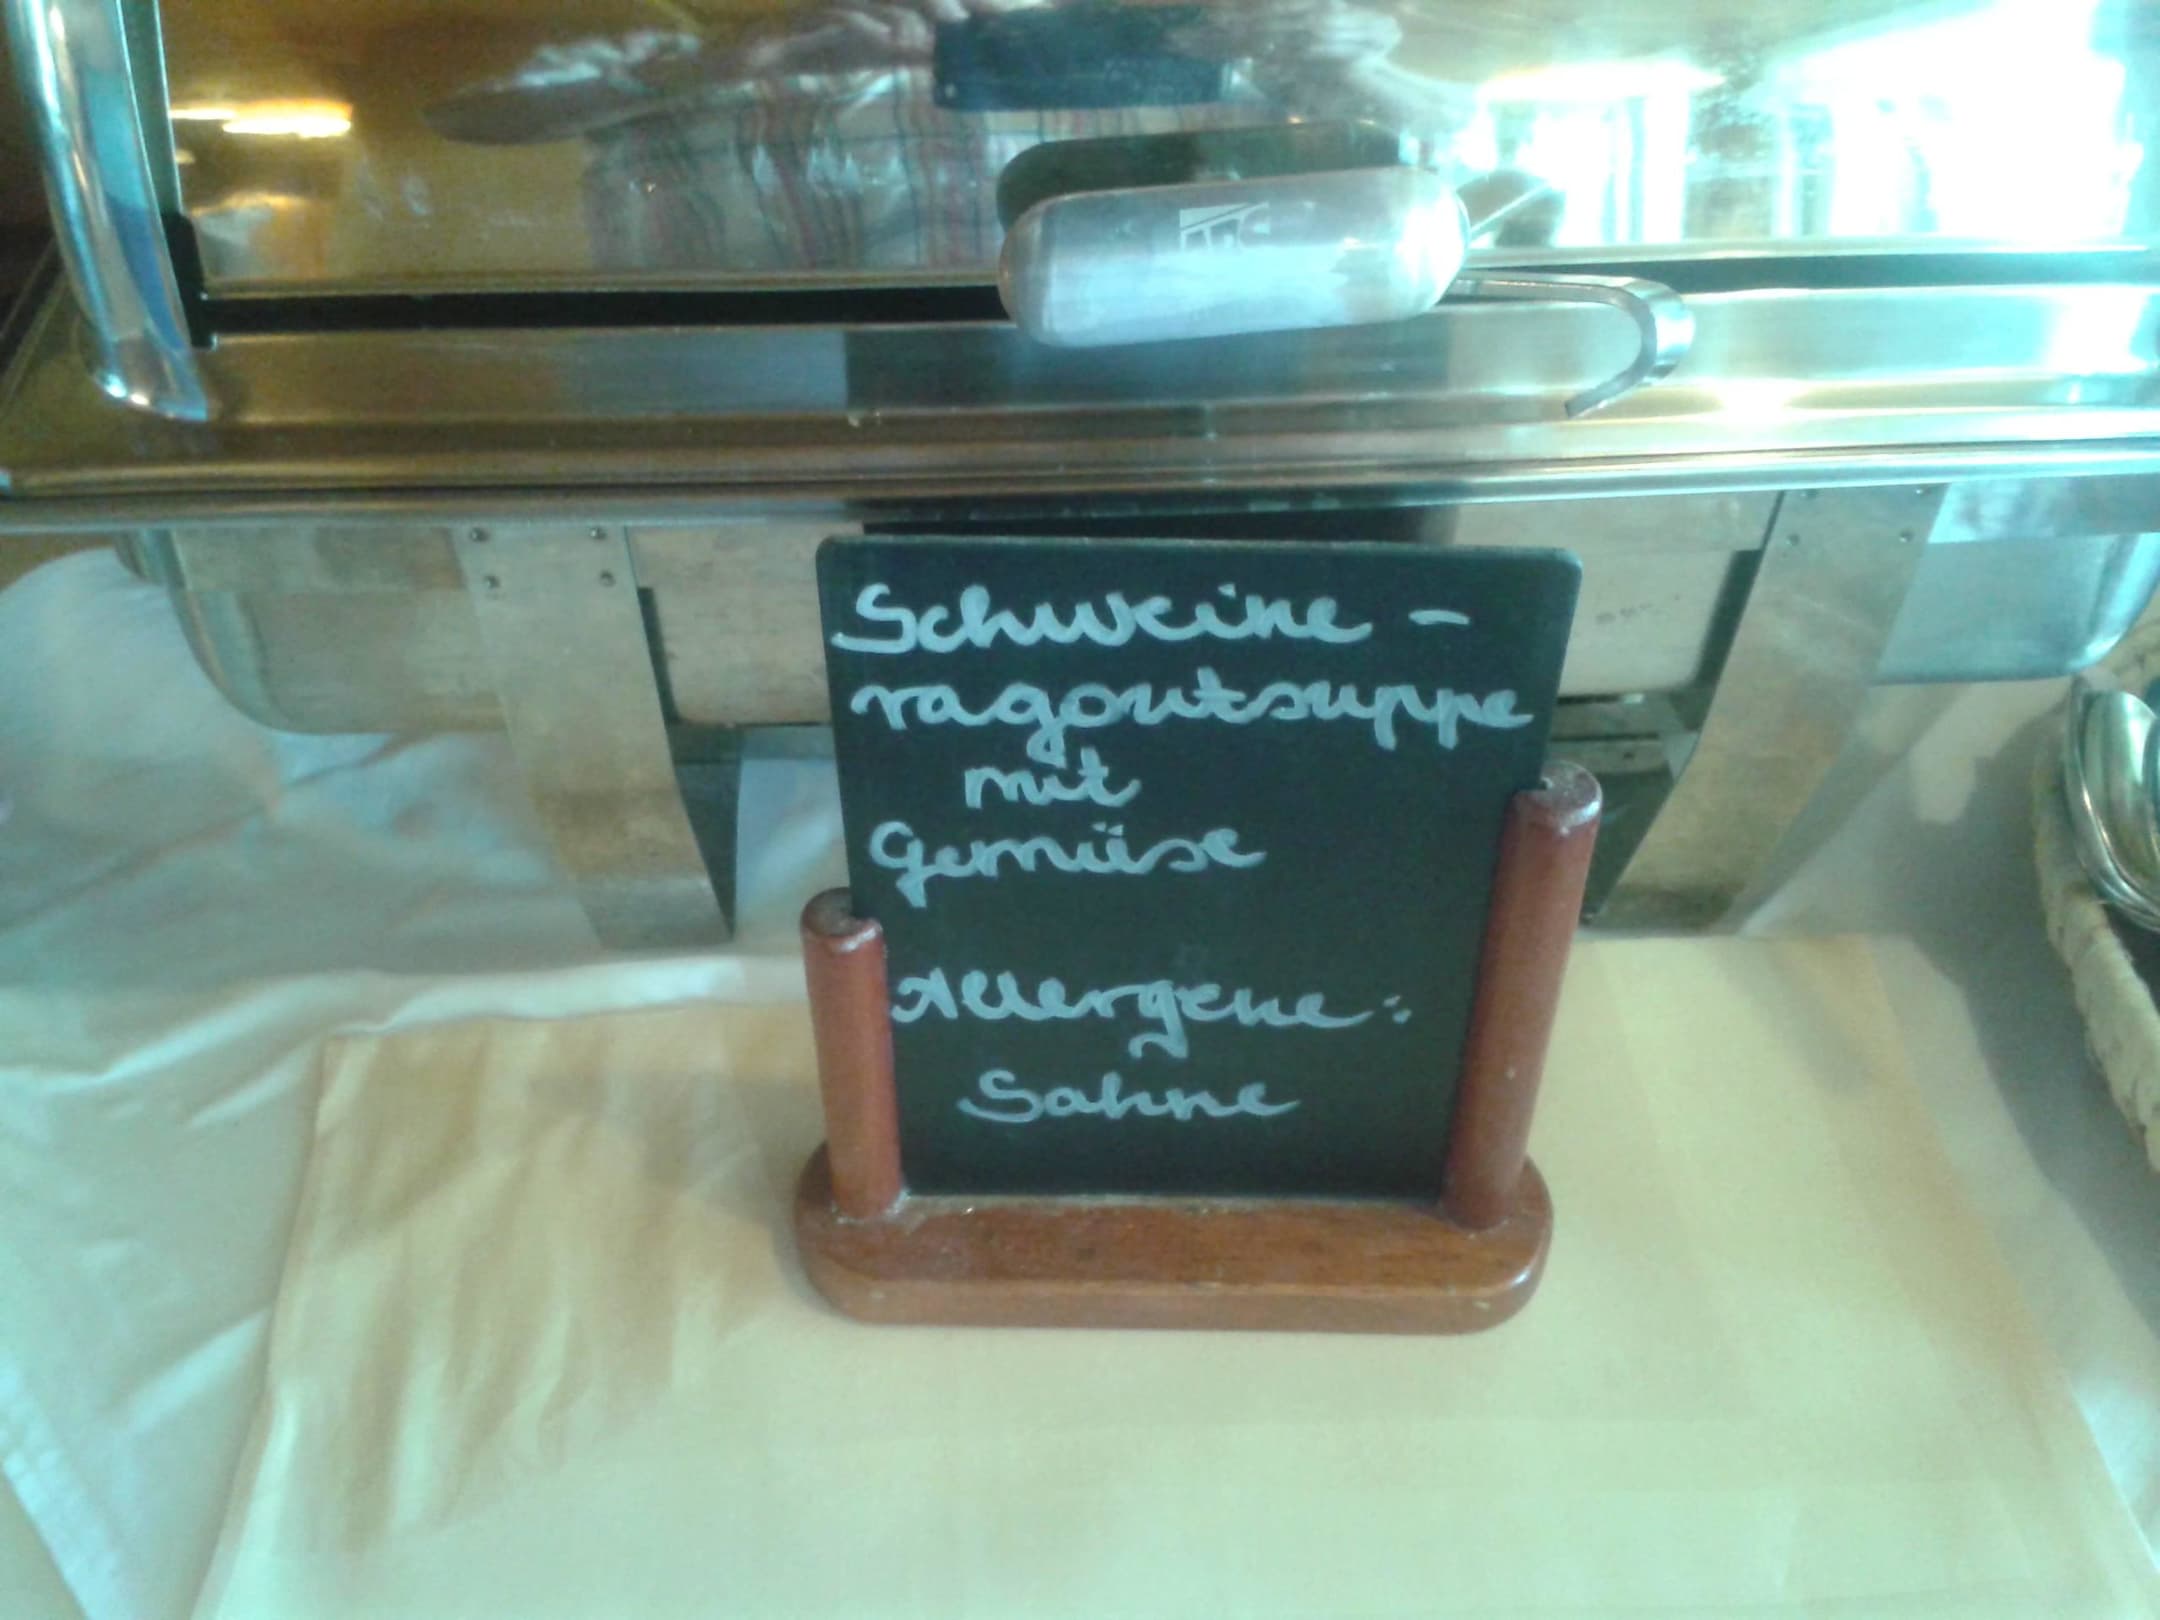 Schweine-
ragoutsuppe
mit
Gemüse
Allergene:
Sahne